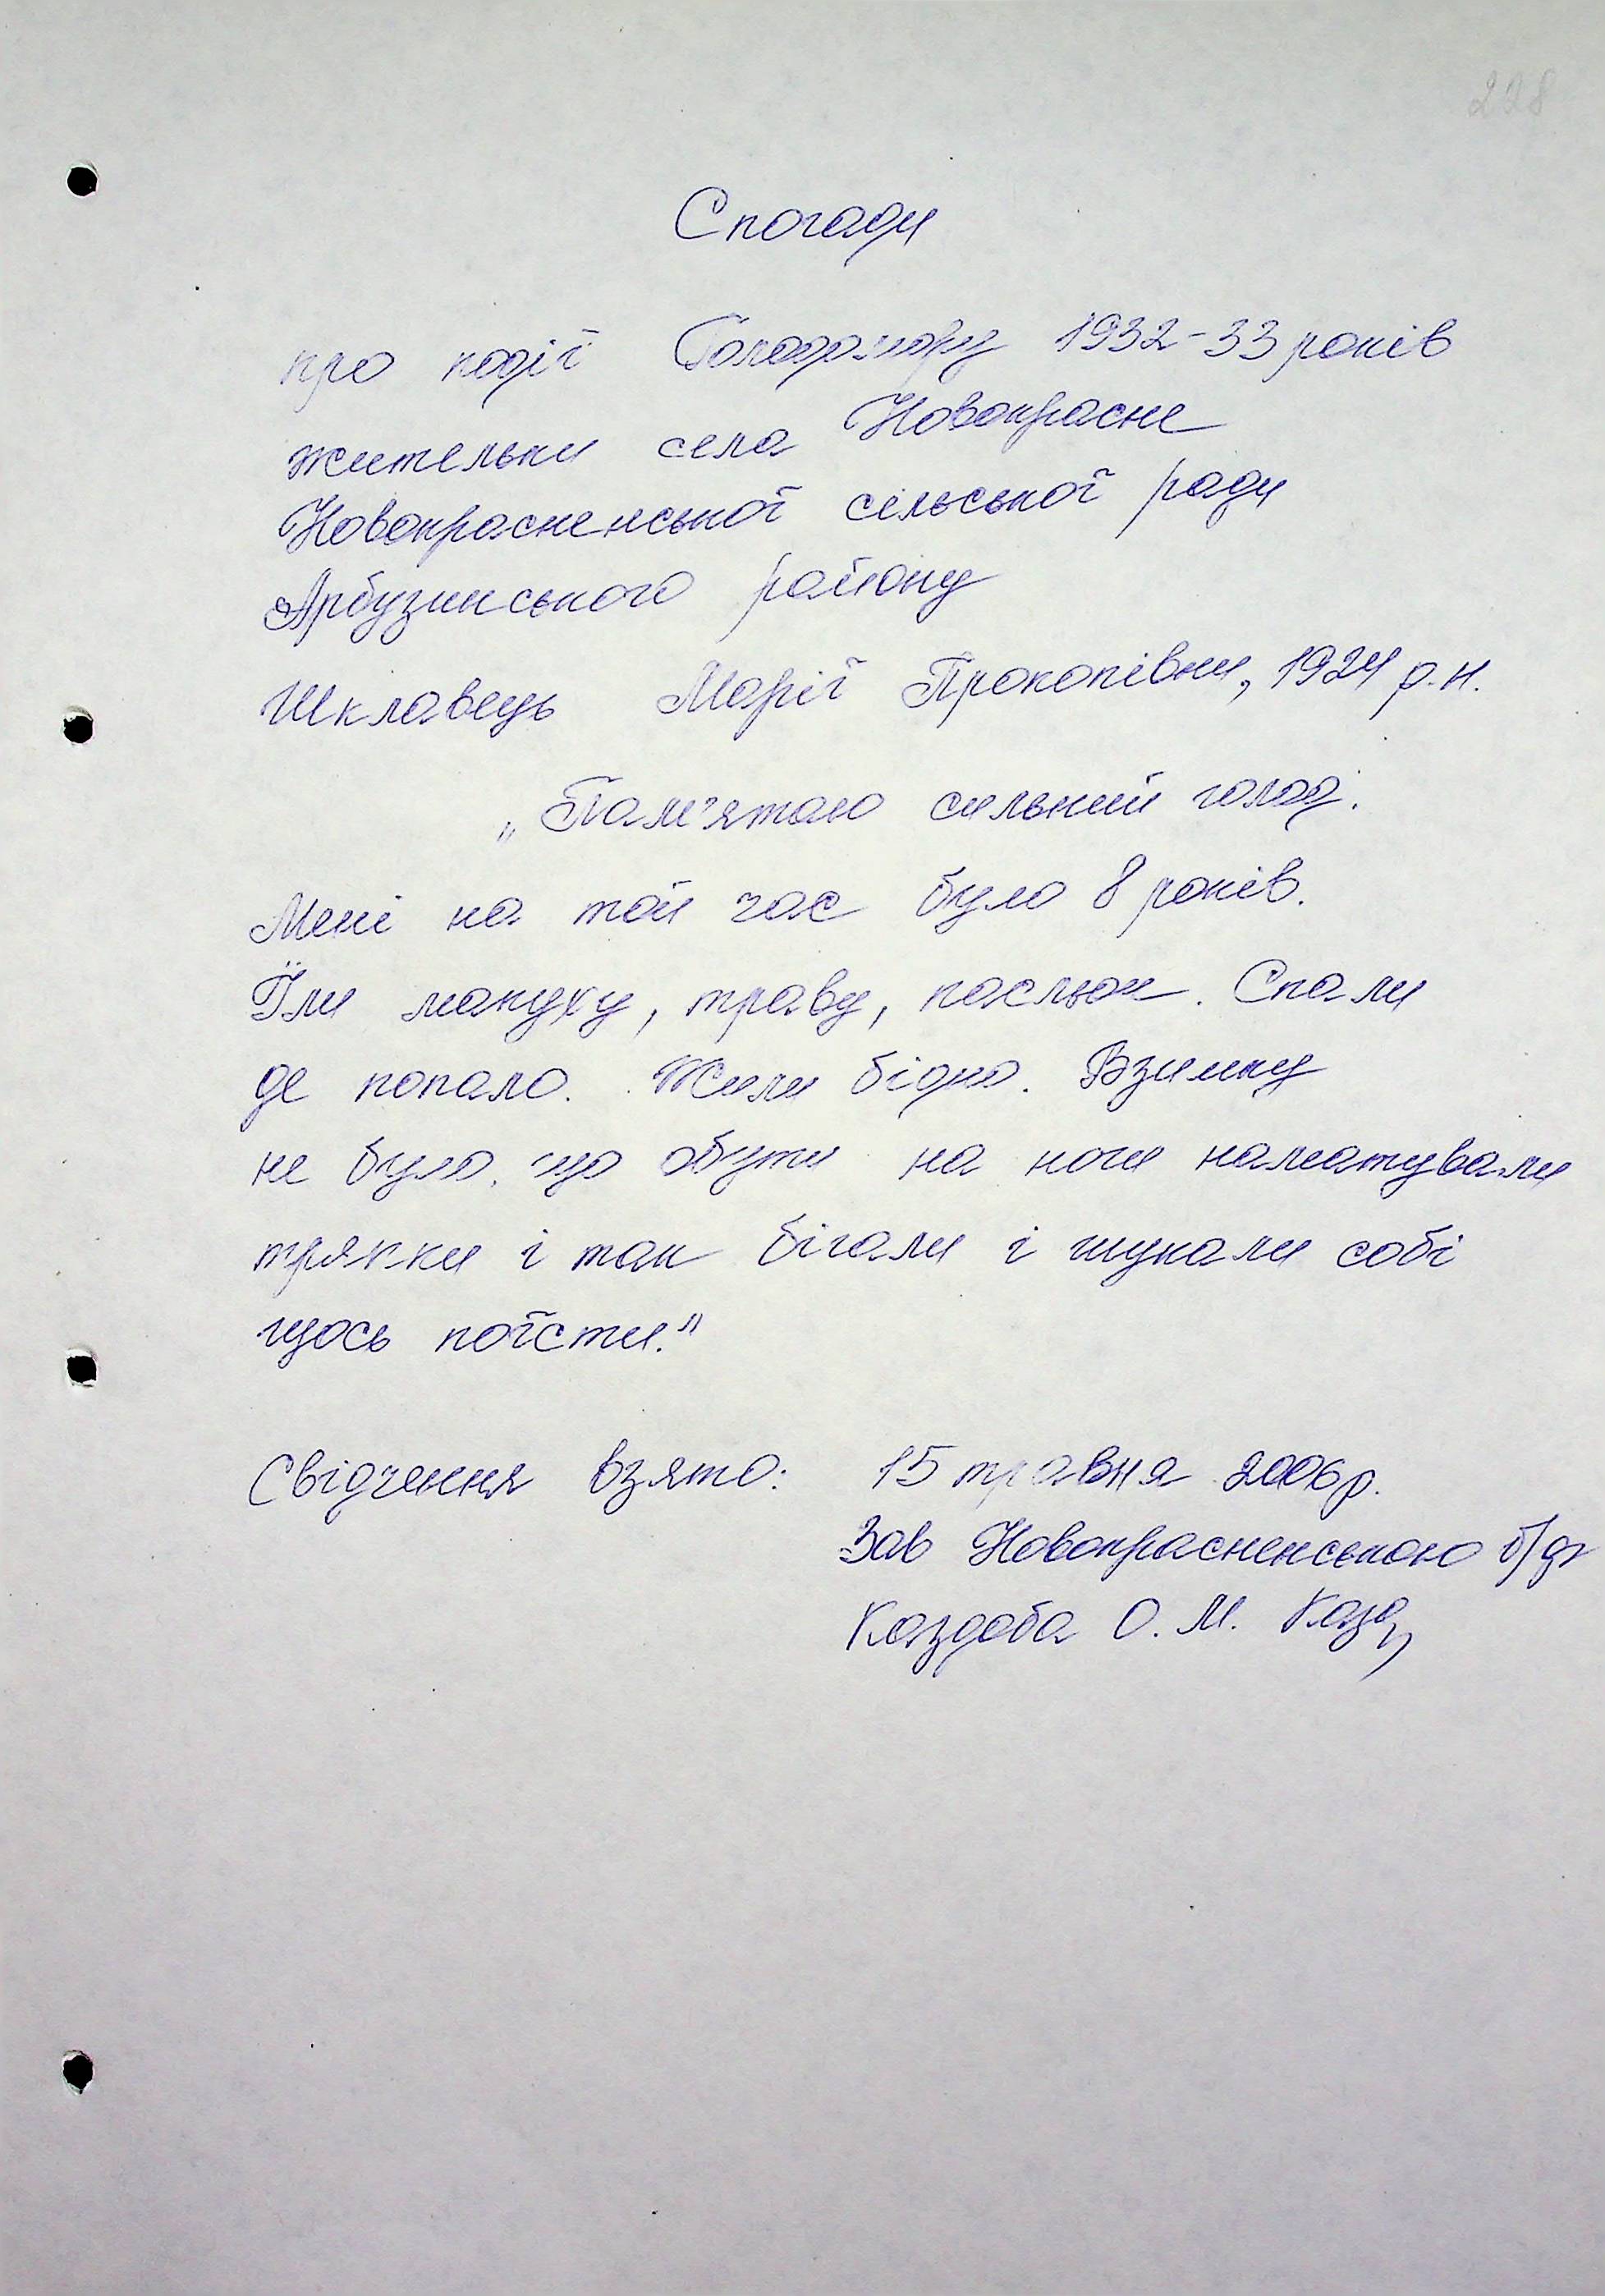 228
Спогади
про події Голодомору 1932-33 років
жительки села Новокрасне
Новокрасненської сільської ради
Арбузинського району
Шклавець Марії Прокопівни, 1924 р.н.
„Пам'ятаю сильний голод.
Мені на той час було 8 років.
Їли макуху, траву, пасльон. Спали
де попало. Жили бідно. Взимку
не було що обути на ноги наматували
тряпки і так бігали і шукали собі
щось поїсти."
Свідчення взято: 15 травня 2006р.
Зав Новокрасненською б/ф
Каздоба О. М.